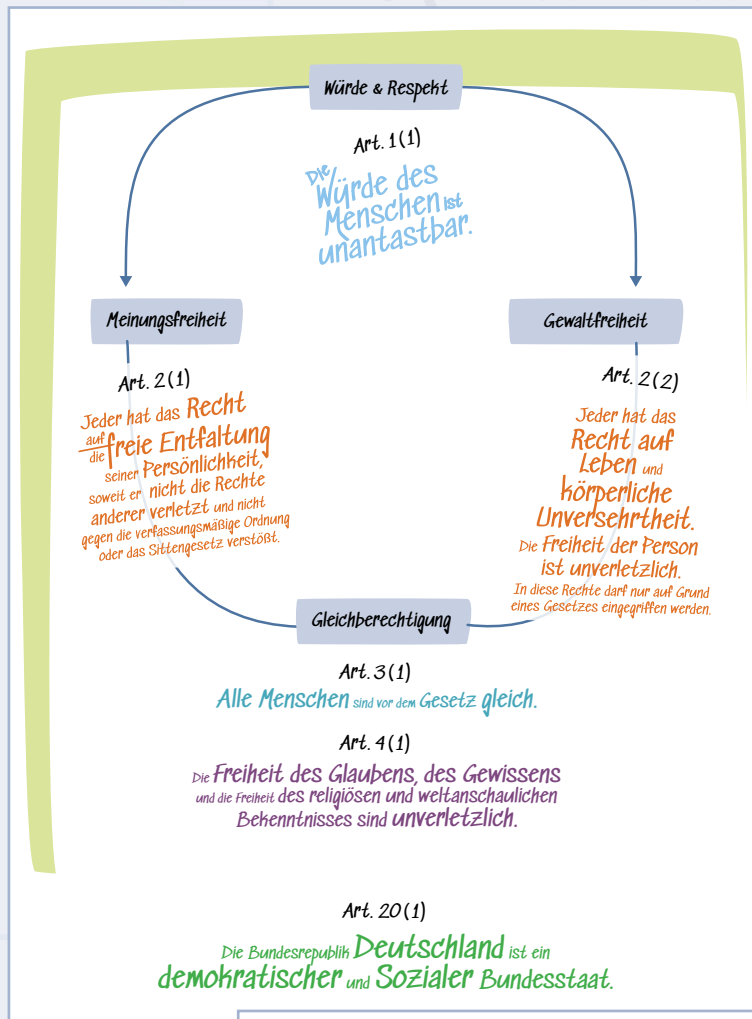 Würde & Respekt
Art. 1(1)
Die
Würde des
Menschen ist
unantastbar.
Meinungsfreiheit
Art. 2(1)
Jeder hat das Recht
auf die freie Entfaltung
seiner Persönlichkeit,
soweit er nicht die Rechte
anderer verletzt und nicht
gegen die verfassungsmäßige Ordnung
oder das Sittengesetz verstößt.
Gewaltfreiheit
Art. 2(2)
Jeder hat das
Recht auf
Leben und
körperliche
Unversehrtheit.
Die Freiheit der Person
ist unverletzlich.
In diese Rechte darf nur auf Grund
eines Gesetzes eingegriffen werden.
Gleichberechtigung
Art. 3(1)
Alle Menschen sind vor dem Gesetz gleich.
Art. 4(1)
Die Freiheit des Glaubens, des Gewissens
und die Freiheit des religiösen und weltanschaulichen
Bekenntnisses sind unverletzlich.
Art. 20(1)
Die Bundesrepublik Deutschland ist ein
demokratischer und Sozialer Bundesstaat.